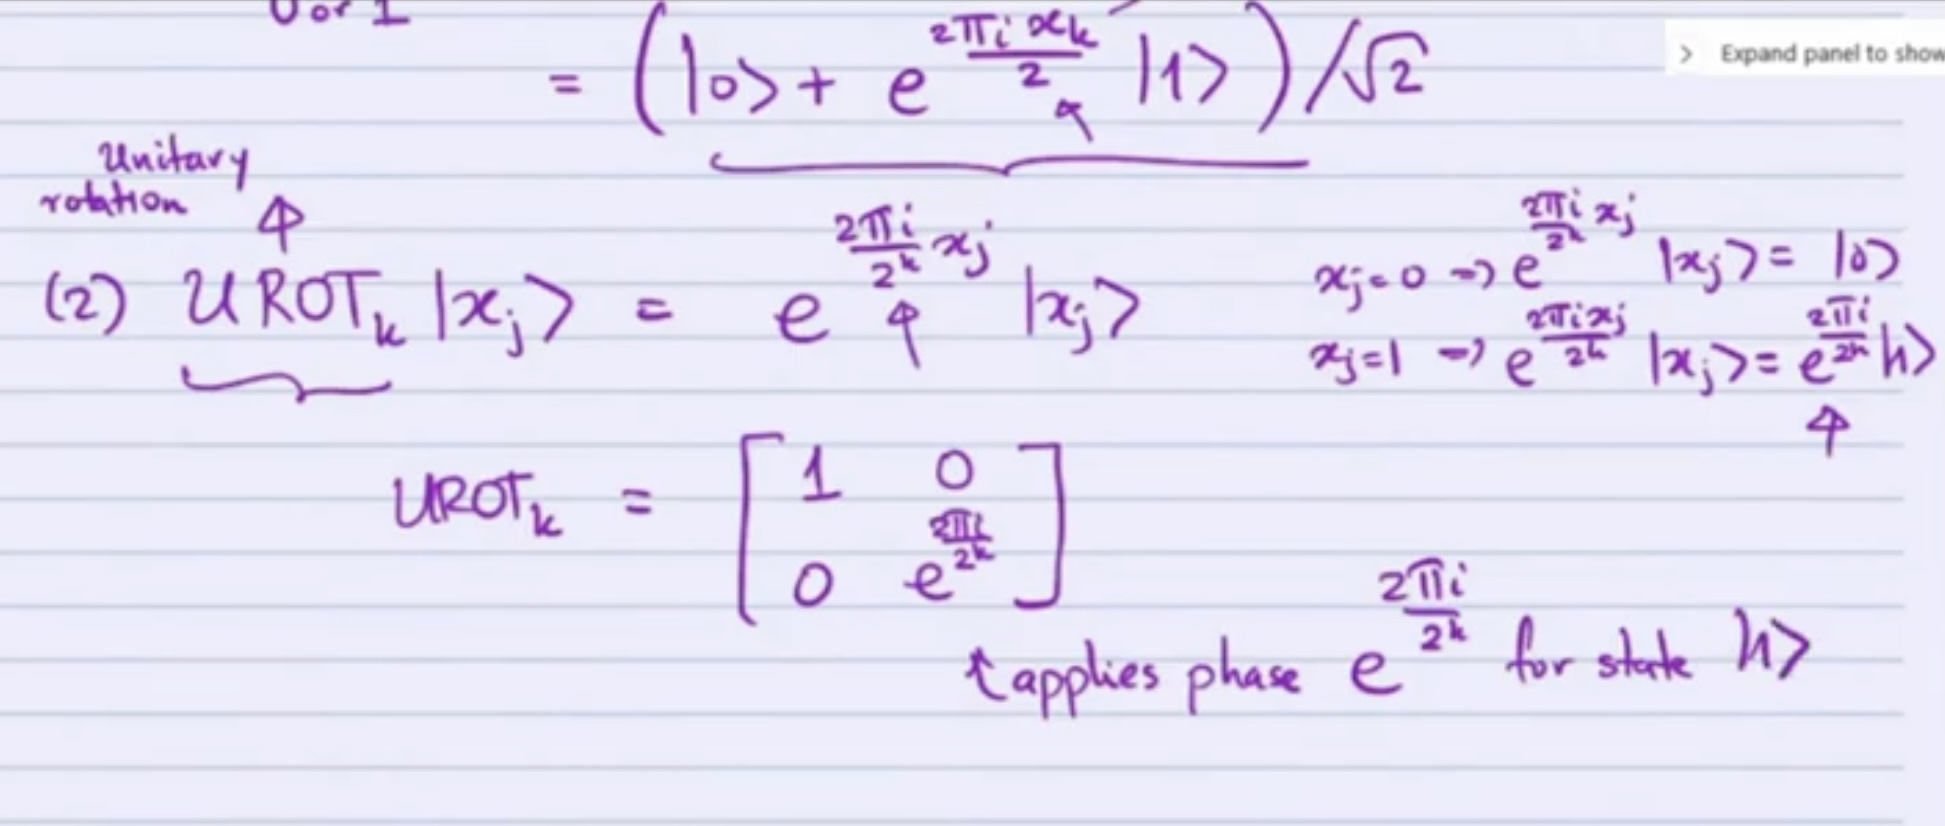 0 or 1
= (|0> + e^(2πi x_k / 2) |1>)/√2
> Expand panel to show
Unitary
rotation
(2) UROT_k |x_j> = e^(2πi/2^k x_j) |x_j>
x_j=0 => e^(2πi/2^k x_j) |x_j> = |0>
x_j=1 => e^(2πi x_j/2^k) |x_j> = e^(2πi/2^k) |1>
UROT_k = [1 0
0 e^(2πi/2^k)]
↑ applies phase e^(2πi/2^k) for state |1>